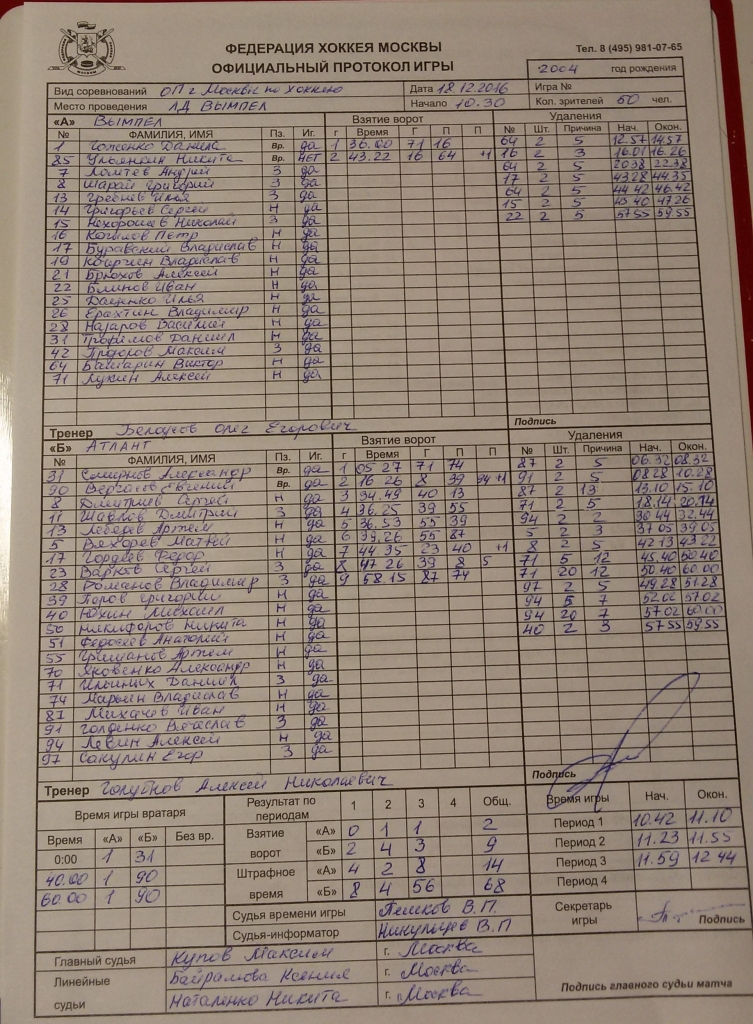 ФЕДЕРАЦИЯ ХОККЕЯ МОСКВЫ
Тел. 8 (495) 981-07-65
ОФИЦИАЛЬНЫЙ ПРОТОКОЛ ИГРЫ
2004 год рождения
Вид соревнований ОП г Москвы по хоккею Дата 18.12.2016 Игра №
Место проведения ЛД ВЫМПЕЛ Начало 10.30 Кол. зрителей 50 чел.
«А» ВЫМПЕЛ Взятие ворот Удаления
№ ФАМИЛИЯ, ИМЯ Пз. Иг. Г Время Г П П № Шт. Причина Нач. Окон.
1 Данила Вр. да 1 36.00 71 16 64 2 5 12.57 14.57
85 Ульянкин Никита Вр. нет 2 43.22 16 64 +1 16 2 3 16.01 16.26
7 Андрей З да 64 2 5 20.38 22.38
8 Шарай Григорий З да 17 2 5 43.28 44.35
13 Гребнев Илья З да 64 2 5 44.42 46.42
14 Григорьев Сергей Н да 15 2 5 45.40 47.26
15 Нехорошев Николай З да 22 2 5 57.55 59.55
16 Петр Н да
17 Буравский Владислав Н да
19 Владислав Н да
21 Брюхов Алексей Н да
22 Блинов Иван Н да
25 Даценко Илья Н да
26 Ерахтин Владимир Н да
28 Назаров Василий Н да
31 Трофимов Даниил Н да
42 Максим З да
64 Байгарин Виктор Н да
71 Лукин Алексей Н да
Тренер Белоусов Олег Егорович Подпись
«Б» АТЛАНТ Взятие ворот Удаления
№ ФАМИЛИЯ, ИМЯ Пз. Иг. Г Время Г П П № Шт. Причина Нач. Окон.
31 Смирнов Александр Вр. да 1 05 27 71 74 87 2 5 06.32 08.32
90 Евгений Вр. да 2 16 26 8 39 94 +1 91 2 5 08.28 10.28
8 Дмитриев Н да 3 34.49 40 13 87 2 13 13.10 15.10
11 Шавков Дмитрий З да 4 36.25 39 55 71 2 5 18.14 20.14
13 Лебедев Артем Н да 5 36.53 55 39 94 2 2 30 44 32.44
5 Вихорев Матвей Н да 6 39.26 55 87 5 2 3 37 05 39.05
17 Гордеев Федор Н да 7 44.35 23 40 +1 8 2 5 42 13 43.22
23 Варков Сергей З да 8 47 26 39 8 5 71 5 12 45.40 50.40
28 Романов Владимир З да 9 58.15 87 74 71 20 12 50 40 60.00
39 Перов Григорий Н да 97 2 5 49.28 51.28
40 Юхин Михаил Н да 94 5 7 52.02 57.02
50 Никифоров Никита Н да 94 20 7 57.02 60.00
51 Федосеев Анатолий Н да 40 2 3 57.55 59.55
55 Гришанов Артем Н да
70 Яковенко Александр Н да
71 Ильиных Даниил З да
74 Марьин Владислав Н да
87 Михачев Иван Н да
91 Голденко Вячеслав З да
94 Левин Алексей Н да
97 Сакулин Егор З да
Тренер Голубков Алексей Николаевич Подпись
Время игры вратаря Результат по периодам 1 2 3 4 Общ. Время игры Нач. Окон.
Время «А» «Б» Без вр. Взятие ворот «А» 0 1 1 2 Период 1 10.42 11.10
0:00 1 31 «Б» 2 4 3 9 Период 2 11.23 11.55
40.00 1 90 Штрафное время «А» 4 2 8 14 Период 3 11.59 12 44
60.00 1 90 «Б» 8 4 56 68 Период 4
Судья времени игры Пешков В.П. Секретарь игры Подпись
Судья-информатор Никульцев В.П
Главный судья Купов Максим г. Москва
Линейные судьи Байрамова Ксения г. Москва
Наталенко Никита г. Москва
Подпись главного судьи матча